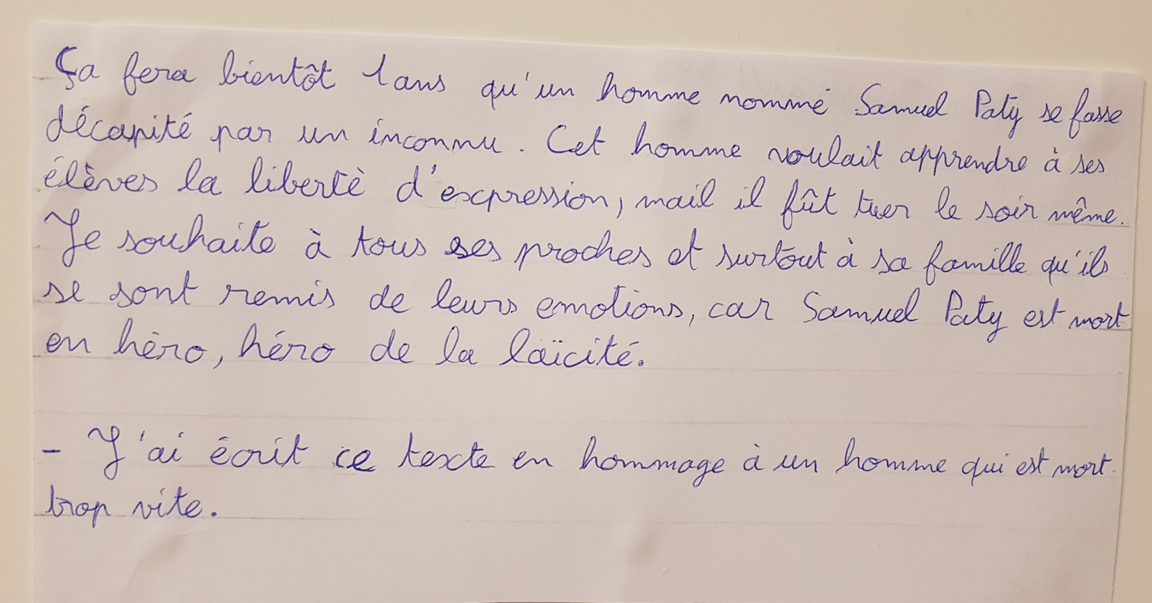 Ça fera bientôt 1ans qu'un homme nommé Samuel Paty se fasse
décapité par un inconnu. Cet homme voulait apprendre à ses
élèves la libertè d'expression, mail il fût tuer le soir même.
Je souhaite à tous ses proches et surtout à sa famille qu'ils
se sont remis de leurs emotions, car Samuel Paty est mort
en hèro, héro de la laïcité.
- J'ai écrit ce texte en hommage à un homme qui est mort
trop vite.